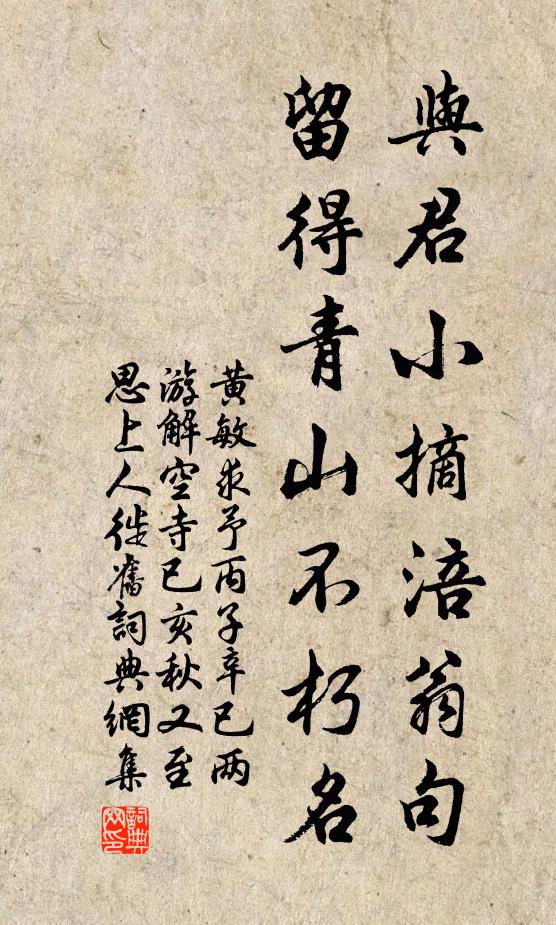 與君小摘涪翁句
留得青山不朽名
黄敏求予丙子辛巳两
游解空寺已亥秋又至
思上人徙舊詞典網集
詞典网印